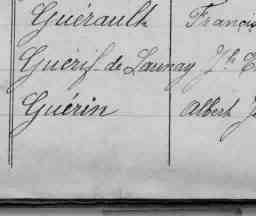 Guérault Francis
Guérif de Launay Jh E
Guérin Albert J